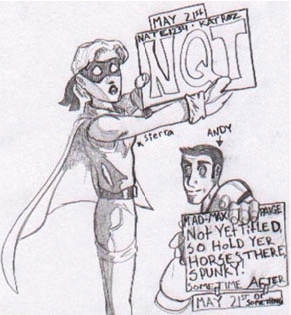 MAY 21ST
NATE1234 · KATROZ
NQT
Sierra
ANDY
MAD-MAX PAIGE
Not Yet Titled,
SO HOLD YER
HORSES THERE,
SPUNKY!
SOMETIME AFTER
MAY 21ST OR SOMETHING